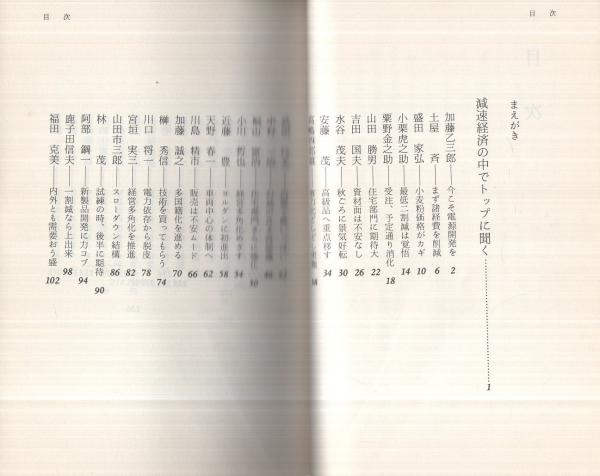 目 次
まえがき
減速経済の中でトップに聞く…………1
加藤乙三郎――今こそ電源開発を 2
土屋 斉――まず諸経費を削減 6
盛田 家弘――小麦粉価格がカギ 10
小栗虎之助――最低二割減は覚悟 14
栗野金之助――受注、予定通り消化 18
山田 勝男――住宅部門に期待大 22
吉田 国夫――資材面は不安なし 26
水谷 茂夫――秋ごろに景気好転 30
安藤 茂――高級品へ重点移す 34
目 次
小川 哲也
近藤 豊――ヨルダンに初進出 58
天野 春一――車両中心の体制へ 62
川島 精市――販売は不安ムード 66
加藤 誠之――多国籍化を進める 70
榊 秀信――技術を買ってもらう 74
川口 将一――電力依存から脱皮 78
宮垣 実三――経営多角化を推進 82
山田市三郎――スローダウン結構 86
林 茂――試練の時、後半に期待 90
阿部 鋼一――新製品開発に力コブ 94
鹿子田信夫――一割減なら上出来 98
福田 克美――内外とも需要おう盛 102